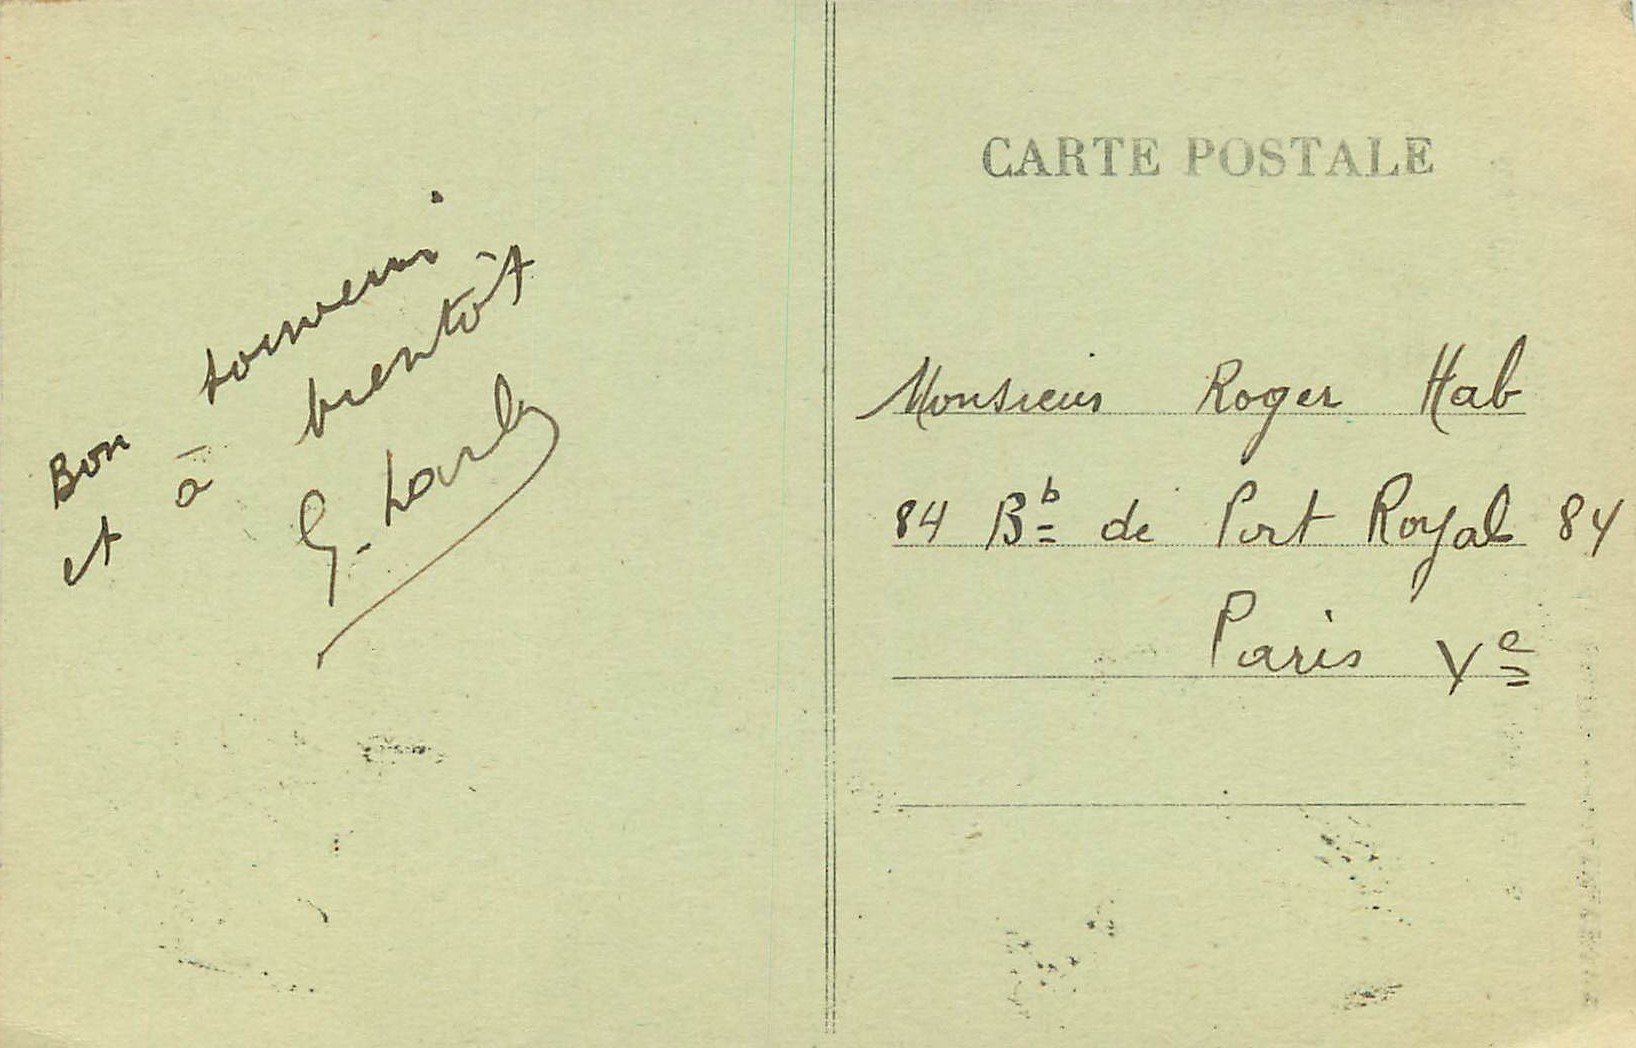 Bon souvenir
et à bientôt
G.
CARTE POSTALE
Monsieur Roger Hab
84 Bd de Port Royal 84
Paris Ve